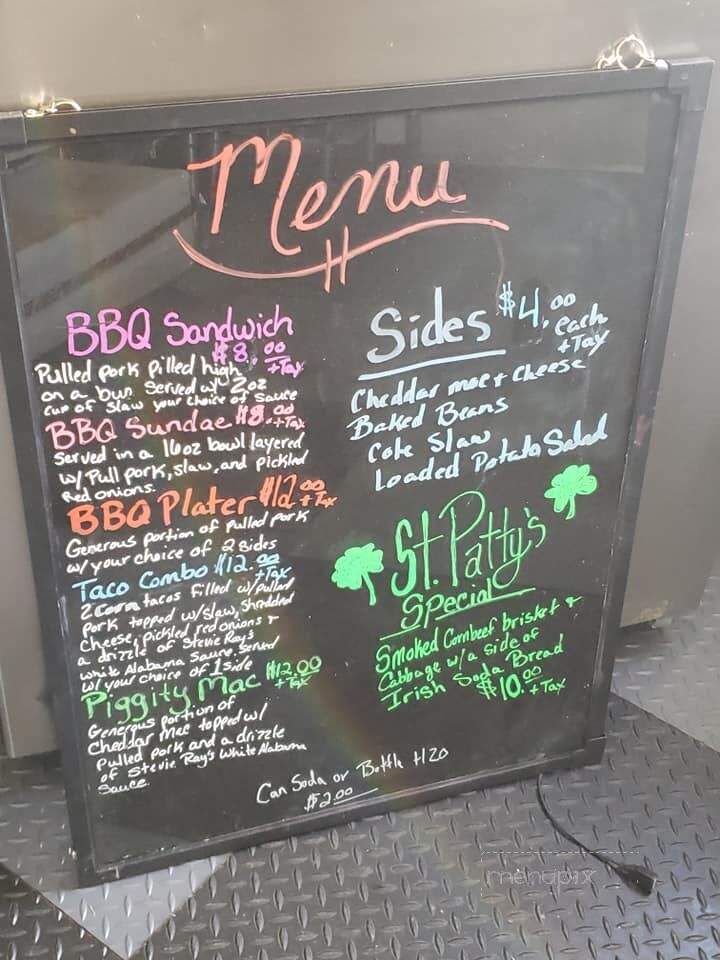 Menu
BBQ Sandwich
$8.00 + Tax
Pulled pork pilled high
on a bun. Served w/ 2oz
cup of slaw your choice of sauce
BBQ Sundae $8.00 + Tax
Served in a 16oz bowl layered
w/ Pull pork, slaw, and pickled
Red onions.
BBQ Plater $12.00 + Tax
Generous portion of pulled pork
w/ your choice of 2 sides
Taco Combo $12.00 + Tax
2 corn tacos filled w/ pulled
pork topped w/ slaw, shredded
cheese, pickled red onions &
a drizzle of Stevie Ray's
white Alabama sauce. Served
w/ your choice of 1 side
Piggity Mac $12.00 + Tax
Generous portion of
Cheddar Mac topped w/
pulled pork and a drizzle
of Stevie Ray's White Alabama
Sauce.
Sides $4.00 each + Tax
Cheddar mac & cheese
Baked Beans
Cole Slaw
Loaded Potato Salad
St. Patty's
Special
Smoked Cornbeef brisket &
Cabbage w/ a side of
Irish Soda Bread
$10.00 + Tax
Can Soda or Bottle H20
$2.00
menupix